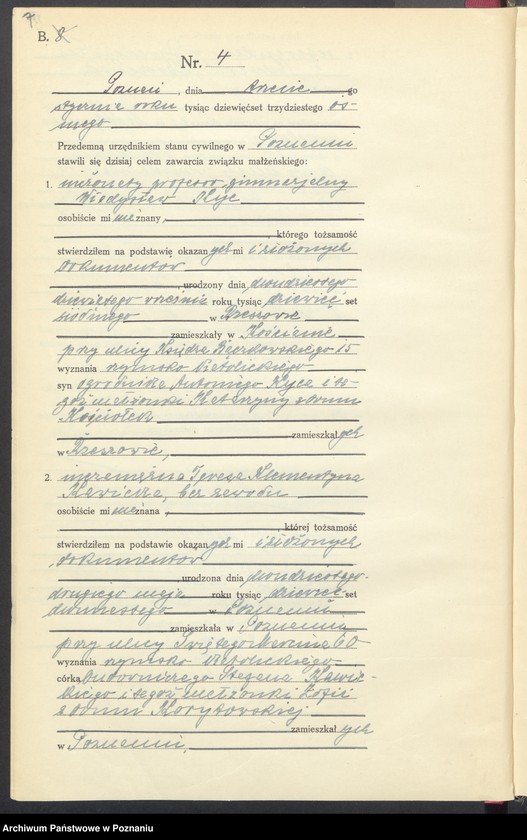 7
B. 8
Nr. 4
Poznań, dnia go
stycznia roku tysiąc dziewięćset trzydziestego ós-
mego
Przedemną urzędnikiem stanu cywilnego w Poznaniu
stawili się dzisiaj celem zawarcia związku małżeńskiego:
1. profesor gimnazjalny
Władysław Kyc
osobiście mi nieznany,
, którego tożsamość
stwierdziłem na podstawie okazanych mi i złożonych
dokumentów
, urodzony dnia dwudziestego
dziewiątego września roku tysiąc dziewięć set
siódmego w Rzeszowie
zamieszkały w Kościanie
przy ulicy Księdza 15
wyznania rzymsko katolickiego
syn ogrodnika Antoniego Kyca i te-
goż małżonki Katarzyny z domu
Kościółek
zamieszkałych
w Rzeszowie,
2. niezamężna Teresa Klementyna
bez zawodu
osobiście mi nieznana,
, której tożsamość
stwierdziłem na podstawie okazanych mi i złożonych
dokumentów
, urodzona dnia dwudziestego
drugiego maja roku tysiąc dziewięć set
dwunastego w Poznaniu
, zamieszkała w Poznaniu
przy ulicy Świętego Marcina 60
wyznania rzymsko katolickiego
córka budowniczego Stefana
i tegoż małżonki Zofii
z domu Korytowskiej
zamieszkałych
w Poznaniu,
Archiwum Państwowe w Poznaniu